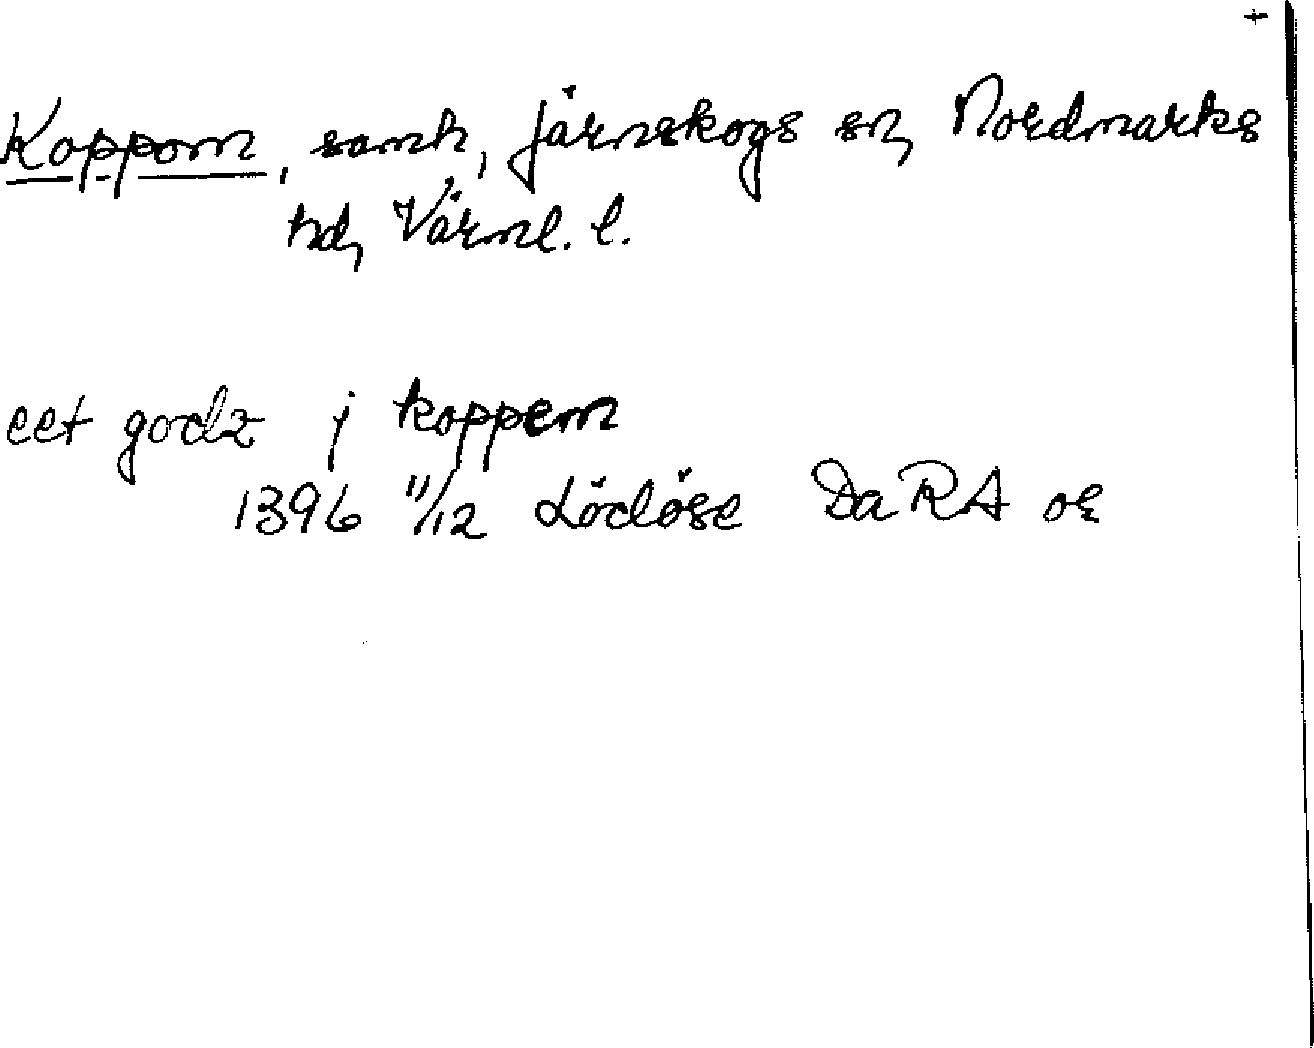 +
Koppom, samh, Järnskogs sn, Nordmarks
hd, Värml. l.
eet godz j koppem
1396 11/12 Lödöse DaRA or